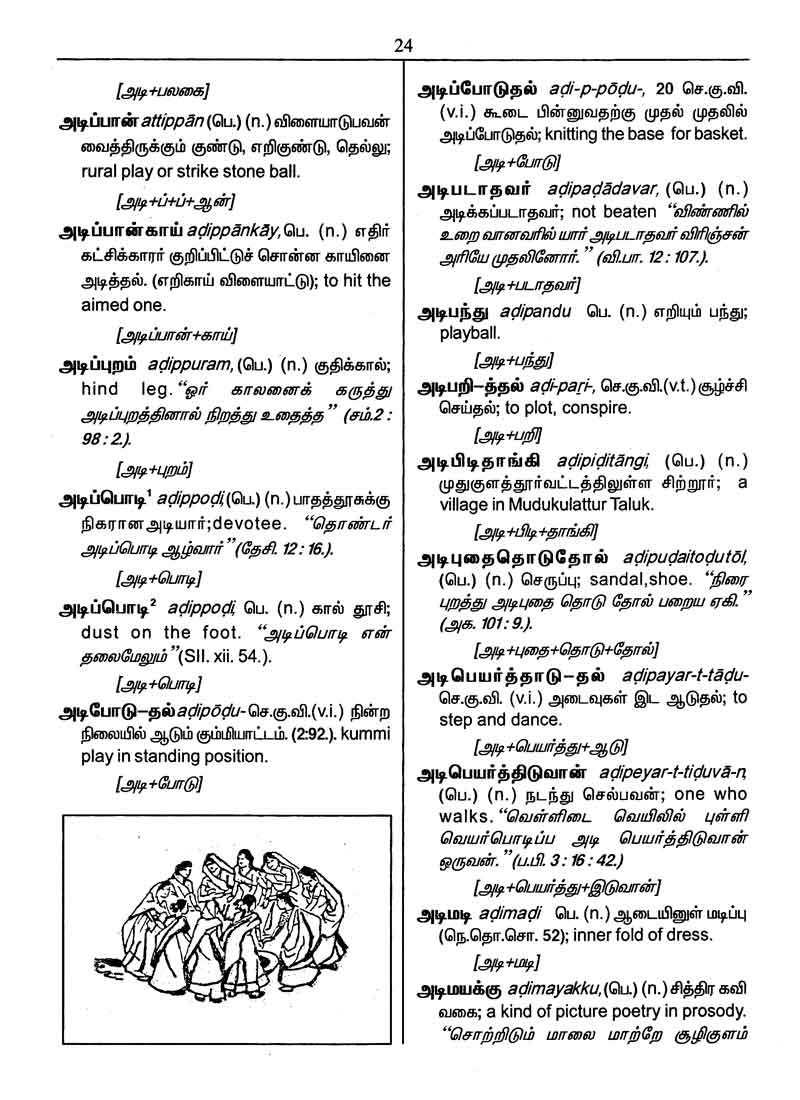 24
[அடி+பலகை]
அடிப்பான் attippān (பெ.) (n.) விளையாடுபவன்
வைத்திருக்கும் குண்டு, எறிகுண்டு, தெல்லு;
rural play or strike stone ball.
[அடி+ப்+ப்+ஆன்]
அடிப்பான்காய் aḍippānkāy, பெ. (n.) எதிர்
கட்சிக்காரர் குறிப்பிட்டுச் சொன்ன காயினை
அடித்தல். (எறிகாய் விளையாட்டு); to hit the
aimed one.
[அடிப்பான்+காய்]
அடிப்புறம் aḍippuram, (பெ.) (n.) குதிக்கால்;
hind leg. “ஓர் காலனைக் கருத்து
அடிப்புறத்தினால் நிறத்து உதைத்த” (சம்.2 :
98 : 2.).
[அடி+புறம்]
அடிப்பொடி¹ aḍippoḍi, (பெ.) (n.) பாதத்தூசுக்கு
நிகரான அடியார்; devotee. “தொண்டர்
அடிப்பொடி ஆழ்வார்” (தேசி. 12 : 16.).
[அடி+பொடி]
அடிப்பொடி² aḍippoḍi, பெ. (n.) கால் தூசி;
dust on the foot. “அடிப்பொடி என்
தலைமேலும்” (SII. xii. 54.).
[அடி+பொடி]
அடிபோடு–தல் aḍipōḍu- செ.கு.வி.(v.i.) நின்ற
நிலையில் ஆடும் கும்மியாட்டம். (2:92.). kummi
play in standing position.
[அடி+போடு]
அடிப்போடுதல் aḍi-p-pōḍu-, 20 செ.கு.வி.
(v.i.) கூடை பின்னுவதற்கு முதல் முதலில்
அடிப்போடுதல்; knitting the base for basket.
[அடி+போடு]
அடிபடாதவர் aḍipaḍādavar, (பெ.) (n.)
அடிக்கப்படாதவர்; not beaten “விண்ணில்
உறை வானவரில் யார் அடிபடாதவர் விரிஞ்சன்
அரியே முதலினோர்.” (வி.பா. 12 : 107.).
[அடி+படாதவர்]
அடிபந்து aḍipandu பெ. (n.) எறியும் பந்து;
playball.
[அடி+பந்து]
அடிபறி–த்தல் aḍi-paṛi-, செ.கு.வி.(v.t.) சூழ்ச்சி
செய்தல்; to plot, conspire.
[அடி+பறி]
அடிபிடிதாங்கி aḍipiḍitāngi, (பெ.) (n.)
முதுகுளத்தூர்வட்டத்திலுள்ள சிற்றூர்; a
village in Mudukulattur Taluk.
[அடி+பிடி+தாங்கி]
அடிபுதைதொடுதோல் aḍipuḍaitoḍutōl,
(பெ.) (n.) செருப்பு; sandal,shoe. “நிரை
புறத்து அடிபுதை தொடு தோல் பறைய ஏகி.”
(அக. 101 : 9.).
[அடி+புதை+தொடு+தோல்]
அடிபெயர்த்தாடு–தல் aḍipayar-t-tāḍu-
செ.கு.வி. (v.i.) அடைவுகள் இட ஆடுதல்; to
step and dance.
[அடி+பெயர்த்து+ஆடு]
அடிபெயர்த்திடுவான் aḍipeyar-t-tiḍuvā-n,
(பெ.) (n.) நடந்து செல்பவன்; one who
walks. “வெள்ளிடை வெயிலில் புள்ளி
வெயர்பொடிப்ப அடி பெயர்த்திடுவான்
ஒருவன்.” (ப.பி. 3 : 16 : 42.)
[அடி+பெயர்த்து+இடுவான்]
அடிமடி aḍimaḍi பெ. (n.) ஆடையினுள் மடிப்பு
(நெ.தொ.சொ. 52); inner fold of dress.
[அடி+மடி]
அடிமயக்கு aḍimayakku, (பெ.) (n.) சித்திர கவி
வகை; a kind of picture poetry in prosody.
“சொற்றிடும் மாலை மாற்றே சூழிகுளம்